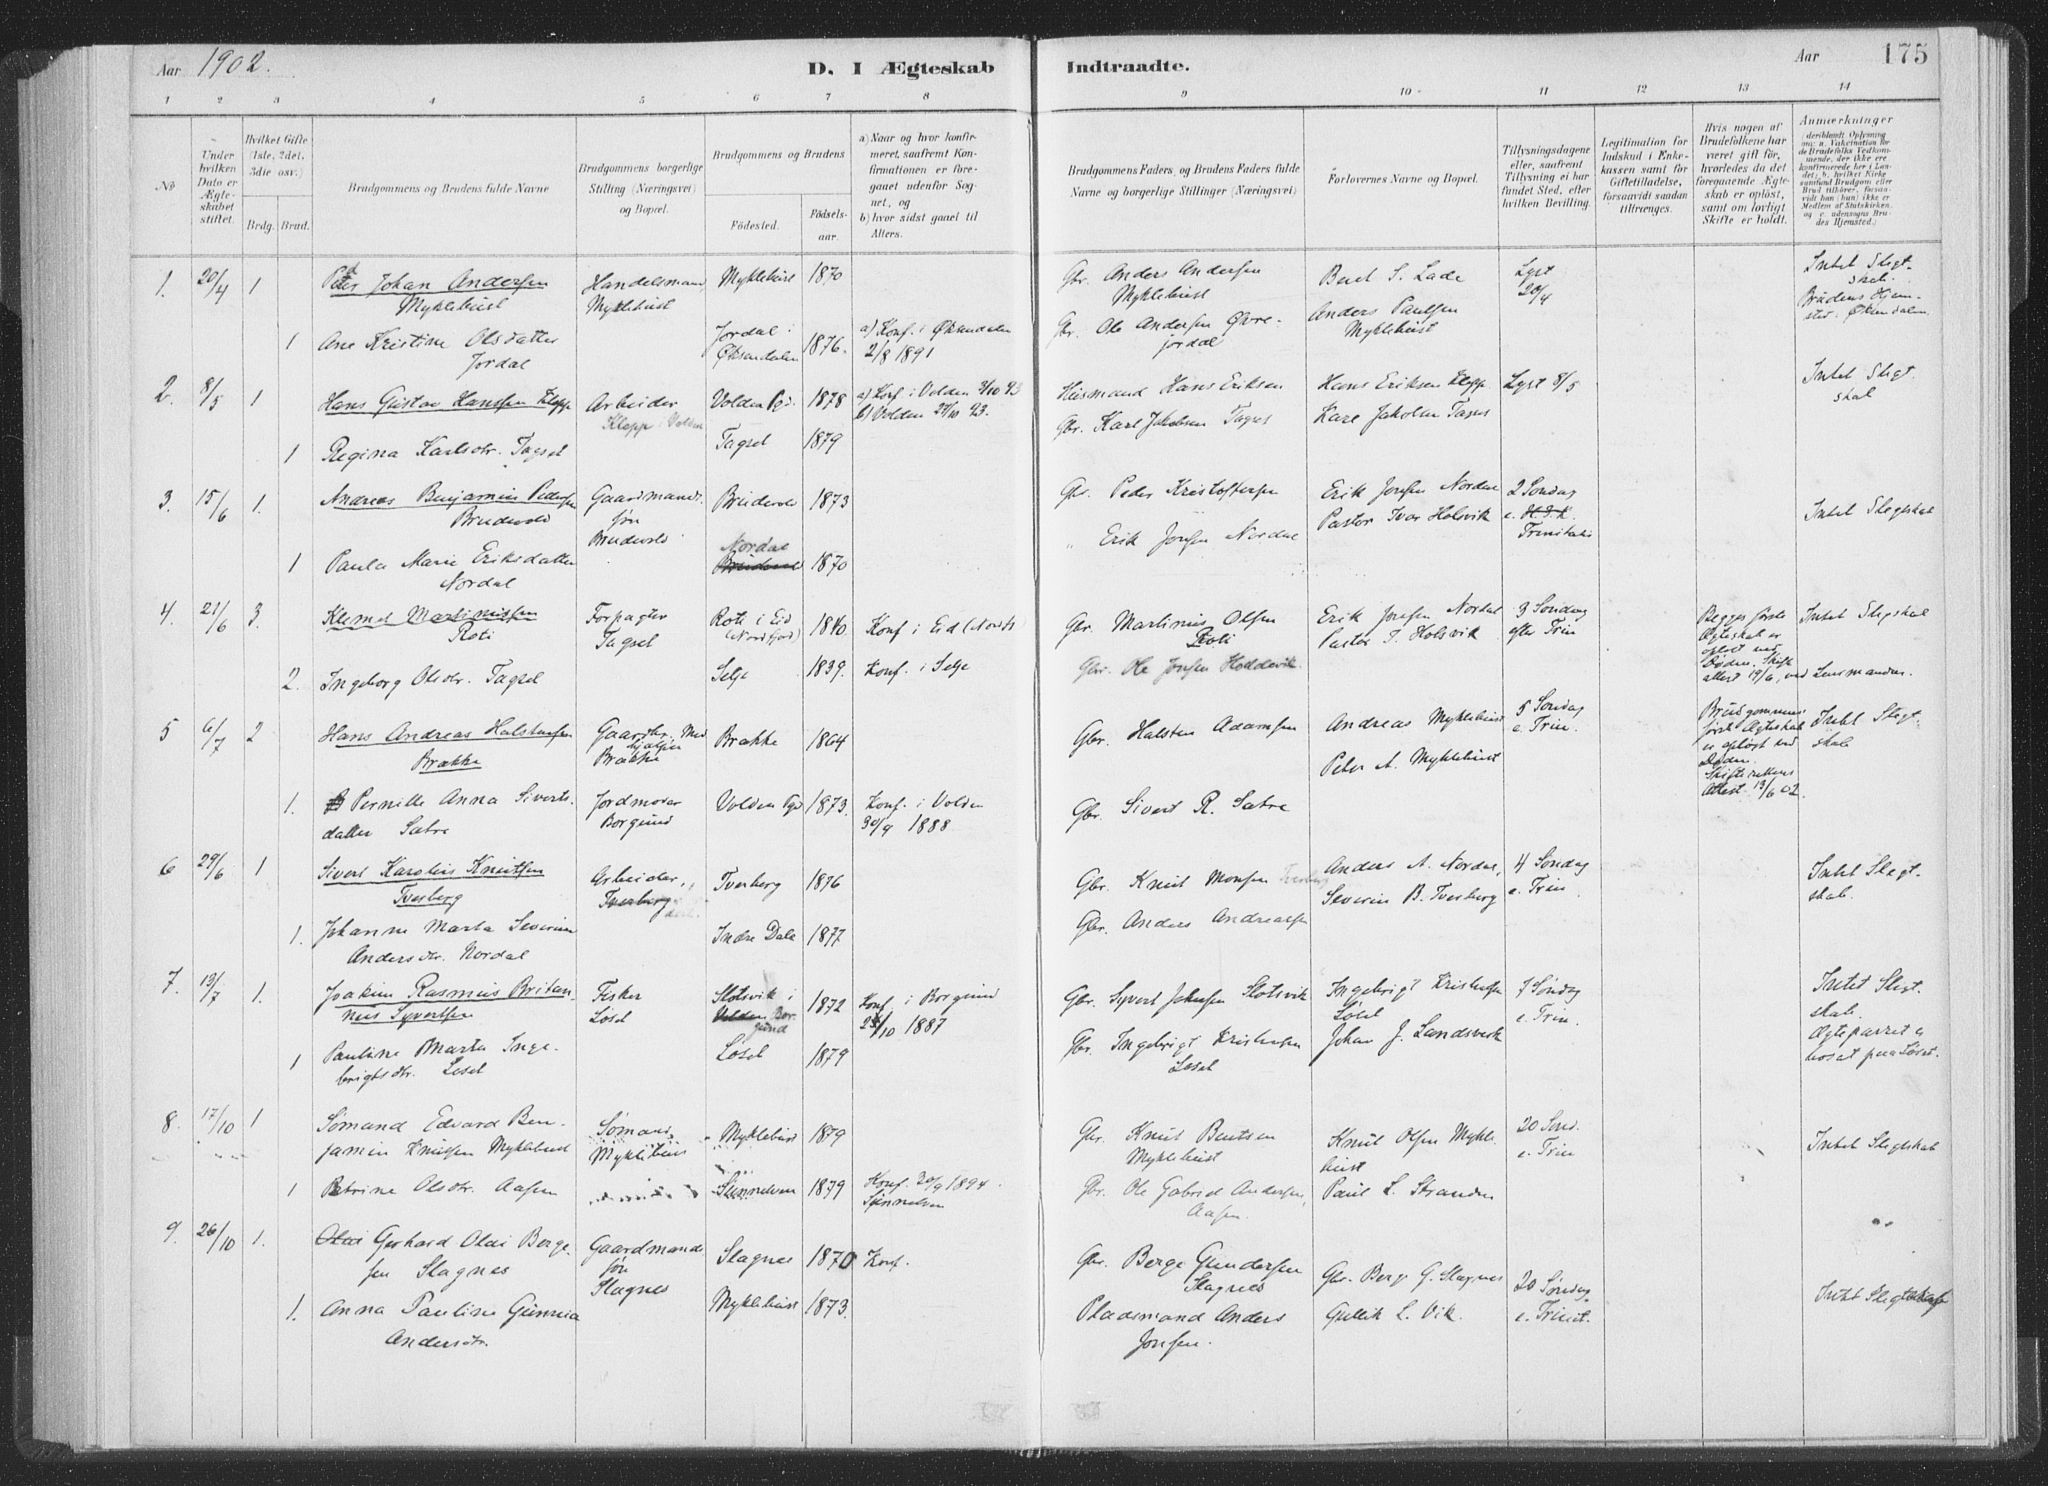 Aar 1902.
D. I Ægteskab
Indtraadte.
Aar
175
1 2 3 4 5 6 7 8 9 10 11 12 13 14
No
Under hvilken Dato er Ægteskabet stiftet.
Hvilket Gifte (1ste, 2det, 3die osv.)
Brdg. Brud.
Brudgommens og Brudens fulde Navne
Brudgommens borgerlige Stilling (Næringsvei) og Bopæl.
Brudgommens og Brudens
Fødested.
Fødselsaar.
a) Naar og hvor konfirmeret, saafremt Konfirmationen er foregaaet udenfor Sognet, og
b) hvor sidst gaaet til Alters.
Brudgommens Faders, og Brudens Faders fulde Navne og borgerlige Stillinger (Næringsvei)
Forlovernes Navne og Bopæl.
Tillysningsdagene eller, saafremt Tillysning ei har fundet Sted, efter hvilken Bevilling.
Legitimation for Indskud i Enkekassen samt for Giftetilladelse, forsaavidt saadan tiltrænges.
Hvis nogen af Brudefolkene har været gift før, hvorledes da det foregaaende Ægteskab er opløst, samt om lovligt Skifte er holdt.
Anmærkninger
1. 20/4 1 Peter Johan Andersen Myklebust
Handelsmand, Myklebust
Myklebust 1870
Gbr. Anders Andersen Myklebust
Bent S. Lade
Anders Paulsen Myklebust
Lyst 20/4
Intet Slegtskab
Brudens Hjemsted: Øksendalen
1 Ane Kristine Olsdatter Jordal
Jordal i Øksendalen 1876.
a) Konf. i Øksendalen 2/8 1891
Gbr. Ole Andersen Øvrejordal
2. 8/5 1 Hans Gustav Hanssen Klepp
Arbeider Klepp i Volden
Volden Pgd. 1878
a) Konf. i Volden
b) Volden
Husmand Hans Eriksen
Hans Eriksen Klepp
Lyst 8/5
Intet Slegtskab
1 Regina Karlsdtr. Tagset
Tagset 1879
Gbr. Karl Jakobsen Tagset
Karl Jakobsen Tagset
3. 15/6 1. Andreas Benjamin Pedersen Brudevold
Gaardmandssøn Brudevold
Brudevold 1873
Gbr. Peder Kristoffersen
Erik Jonsen Nordal
Pastor Ivar Holsvik
2 Søndag e. H.3.K. Trinitatis
Intet Slegtskab
1 Paula Marie Eriksdatter Nordal
Nordal Brudevold 1870
" Erik Jonsen Nordal
4. 21/6 3. Klemet Martinussen Roti
Forpagter Tagset
Roti i Eid (Nordfjord) 1840
Konf. i Eid (Nordf.)
Gbr. Martinus Olsen Roti
Erik Jonsen Nordal
Pastor I. Holsvik
3 Søndag efter Trin
Begges første Ægteskab er opløst ved Døden. Skifteattest 19/6, ved Lensmanden.
Intet Slegtskab
2. Ingeborg Olsdtr. Tagset
Selje 1839.
Konf. i Selje
Gbr. Ole Jonsen Hoddevik
5 6/7 2 Hans Andreas Halstensen Brække
Brække 1864
Gbr. Halsten Adamsen
Andreas Myklebust
Peter A. Myklebust
5 Søndag e. Trin.
Brudgommens første Ægteskab er opløst ved Døden. Skifterettens Attest 13/6 02.
Intet Slegtskab
1. Pernille Anna Sivertsdatter Sætre
Jordmoder Borgund
Volden Pgd 1873.
Konf. i Volden 30/9 1888
Gbr. Sivert R. Sætre
6 29/6 1 Sivert Karolius Knutsen Tverberg
Arbeider, Tverberg
Tverberg 1876
Gbr. Knut Monsen Tverberg
Anders A. Nordal,
Severin B. Tverberg
4 Søndag e. Trin.
Intet Slegtskab.
1. Johanne Marta Severine Andersdtr. Nordal
Indre Dale 1877
Gbr. Anders Andreassen
7. 13/7 1. Joakim Rasmus Britannus Syvertsen
Fisker Løset
Slotsvik i Volden Borgund 1872
Konf. i Borgund 23/10 1887
Gbr. Syvert Johnsen Slotsvik
Ingebrigt Kristensen Løset
Johan J. Landsverk
7 Søndag e. Trin.
Intet Slegtskab.
Ægteparret er bosat paa Løset.
1 Pauline Marta Ingebrigtsdtr. Løset
Løset 1879
Gbr. Ingebrigt Kristensen Løset
8. 17/10 1 Sømand Edvard Benjamin Knutsen Myklebust
Sømand, Myklebust
Myklebust 1879
Gbr. Knut Bentsen Myklebust
Knut Olsen Myklebust
Paul L. Stranden
20 Sønd. e. Trin
Intet Slegtskab
1 Petrine Olsdtr. Aasen
Sunnelven 1879
Konf. 20/9 1894. Sunnelven
Gbr. Ole Gabriel Andersen, Aasen.
9. 26/10 1. Olai Gerhard Olai Bergesen Slagnes
Gaardmandssøn Slagnes
Slagnes 1870
Konf.
Gbr. Berge Gundersen Slagnes
Gbr. Berge G. Slagnes
Gullik L. Vik.
20 Søndag e. Trinit.
Intet Slegtskab
1. Anna Pauline Gunnia Andersdtr.
Myklebust 1873.
Pladsmand Anders Jonsen.